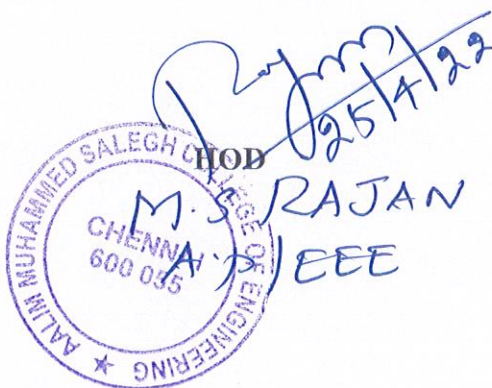 25/4/22
HOD
M.S RAJAN
A.P/EEE
AALIM MUHAMMED SALEGH COLLEGE OF ENGINEERING ★
CHENNAI
600 055